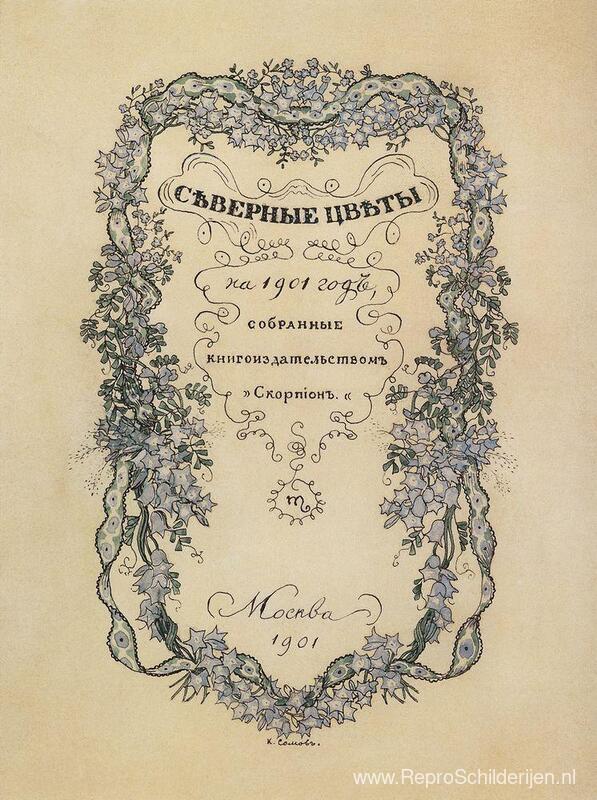 СѢВЕРНЫЕ ЦВѢТЫ
на 1901 годъ,
СОБРАННЫЕ
КНИГОИЗДАТЕЛЬСТВОМЪ
»Скорпіонъ.«
m
Москва
1901
К. Сомовъ.
www.ReproSchilderijen.nl